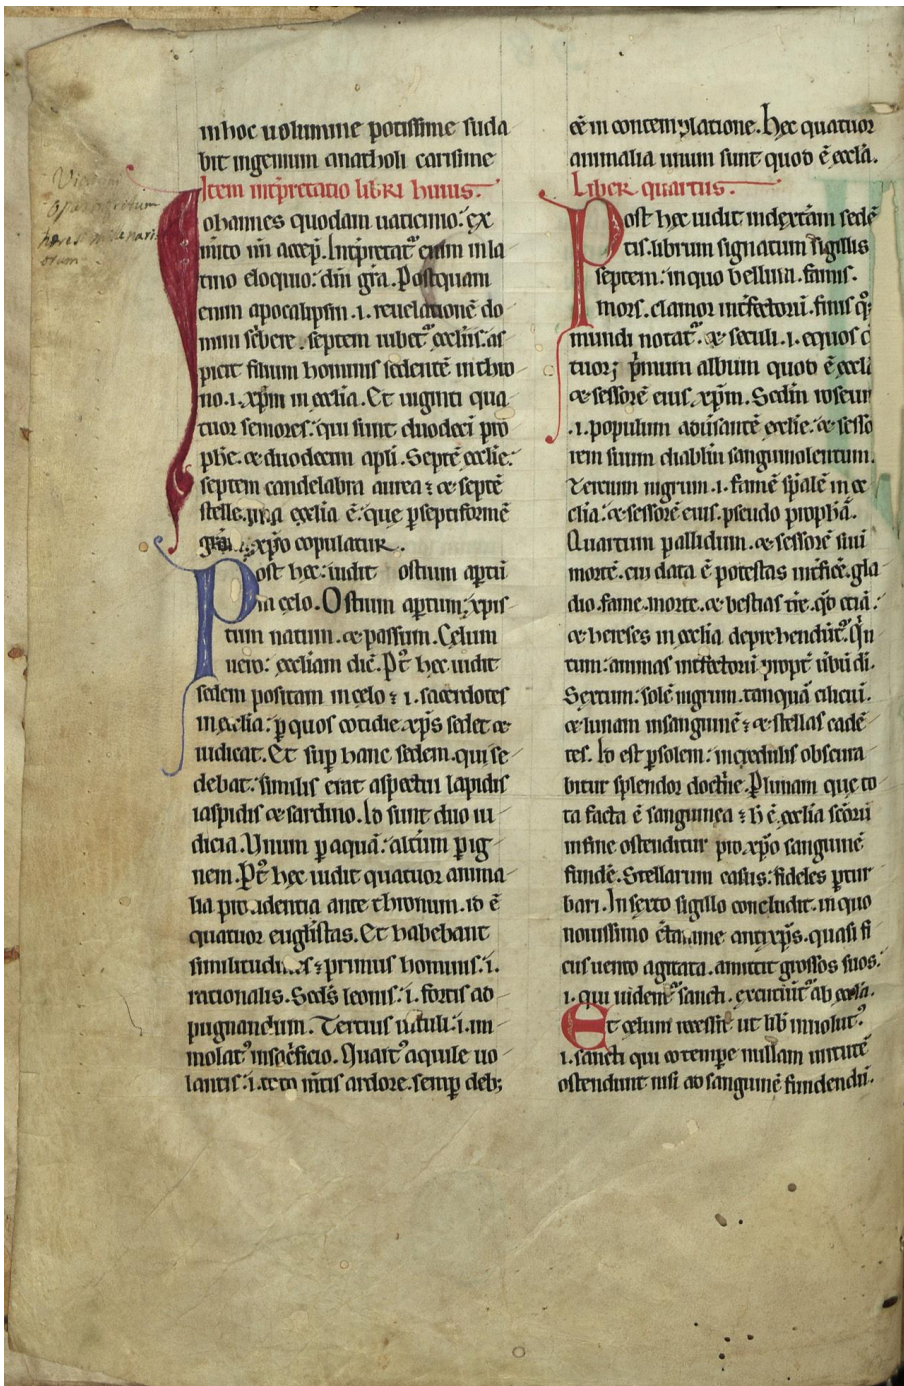 in hoc uolumine potissime suda
bit ingenium anatholi carisime
Item int̄pretatio libri huius.
Iohannes quodam uaticinio: ex
num accep̄. Int̄pretat᷑ enim in la
tino eloquio: dīn gr̄a. Postquam
enim apocalipsin .i. reuelationē do
mini sc̄bere septem iubet᷑ ecclīis. as
picit filium hominis sedentē in thro
no .i. xp̄m in ecclīa. Et uiginti qua
tuor seniores: qui sunt duodeci pro
phē. & duodecim apl̄i. Septē ecclīe:
septem candelabra aurea: & septē
stelle. una ecclīa ē: que p̱septiformē
xp̄o copulatur.
Post hec: uidit ostium aptū
in celo. Ostium ap̱tum: xpis
tum natum. & passum. Celum
uero: ecclīam dic̄. P᷑t hec uidit
sedem positam in celo: .i. sacerdotes
in ecclīa: p̱ quos cotidie xp̄s sedet &
iudicat. Et sup̱ hanc sedem. qui se
debat: similis erat aspectui lapidis
iaspidis & sardino. Io sunt duo iu
dicia. Vnum p̱ aquā: alt̄um p̱ ig
nem. P᷑t hec uidit quatuor anima
lia ante thronum. id ē
quatuor eugl̄istas. Et habebant
similitudines: primus hominis .i.
rationalis. Sec̄ds leonis: .i. fortis ad
pugnandum. Tercius uituli: .i. im
molatꝰ in sac̄ficio. Quartꝰ aquile uo
lantis: .i. īt̄is ardore. semp̱ deb;
eē in contemplatione. Hec quatuor
animalia unum sunt quod ē eccl̄a.
Liber quartus.
Post hec uidit in dext̄am sedē
tis. librum signatum sigillis
septem: in quo bellum. famis.
mors. clamor int̄fectorū. finis q̄;
mundi notat᷑. & seculi .i. equos q̄
tuor; p̄mum album quod ē eccl̄i
& sessorē eius. xp̄m. Sedm̄ roseum
.i. populum adūsantē ecclīe: & sesso
rem suum diabl̄m sanguinolentum.
Tercium nigrum .i. famē sp̄alē in ec
clīa: & sessorē eius. pseudo prophā.
Quartum pallidum. & sessorē suū
mortē. cui data ē potestas int̄ficē. gla
dio. fame. morte. & bestias t̄re. qd̄ etiā:
& hereses in ecclīa deprehendūt᷑. Quī
tum: animas int̄fectorū ꝓpt̄ ūbū dī.
Sextum: solē nigrum. tanquā cilicū.
& lunam in sanguinē: & stellas cadē
tes. Io est p̱ solem: incredulis obscura
bitur splendor doct̄ne. P̱ lunam que to
ta facta ē sanguinea: h̄ ē ecclīa sc̄orū
in fine ostenditur pro xp̄o sanguinē
fundē. Stellarum casus: fideles p̱tur
bari. In sexto sigillo concludit. in quo
nouissimo c̄tamine antixp̄s. quasi fi
cus uento agitata. amittit grossos suos:
.i. qui uident᷑ sancti. excutiūt᷑ ab eccl̄a.
Et celum recessit ut lib̄ inuolutꝰ:
.i. sancti qui eo tempe nullam uirtutē
ostendunt nisi ad sanguinē fundendū.